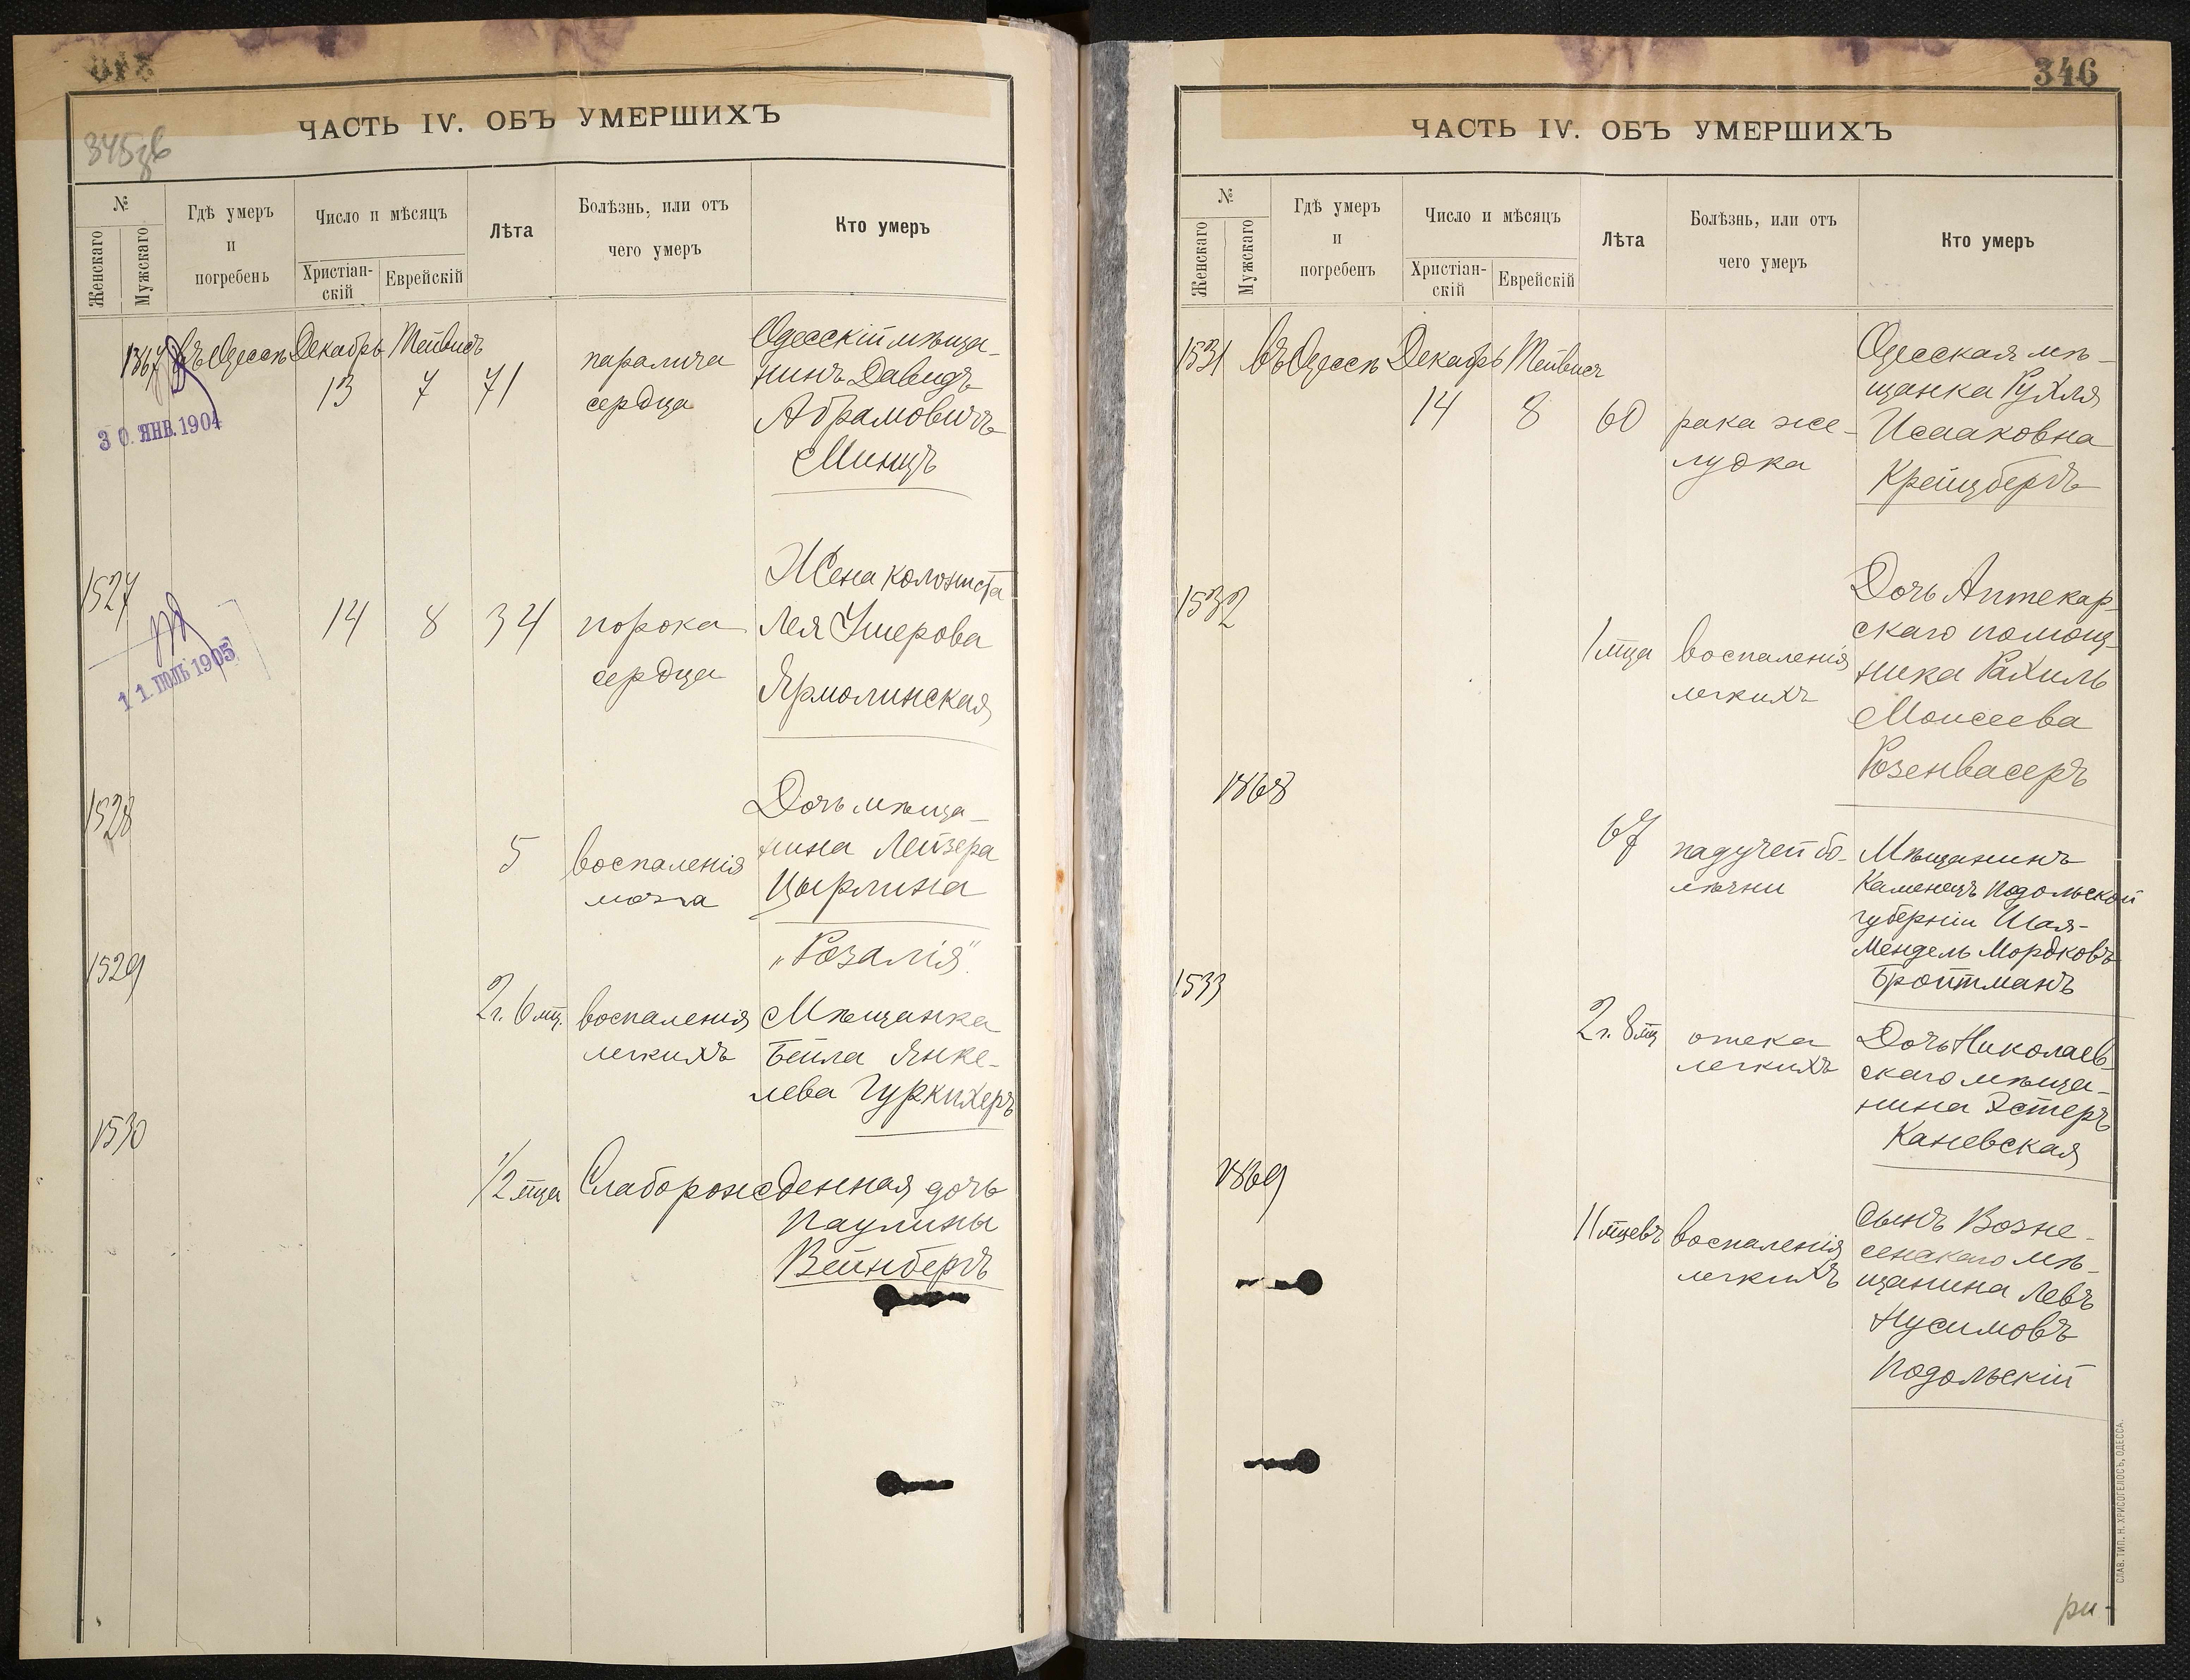 ЧАСТЬ IV. ОБЪ УМЕРШИХЪ
345 об
№
Женскаго
Мужскаго
Гдѣ умеръ
и
погребенъ
Число и мѣсяцъ
Христіан-
скій
Еврейскій
Лѣта
Болѣзнь, или отъ
чего умеръ
Кто умеръ
1367 Въ Одессѣ Декабрь Тейвисъ
13 7 71
паралича
сердца
Одесскій мѣща-
нинъ Давидъ
Абрамовичъ
Минцъ
30. ЯНВ. 1904
1527
14 8 34
порока
сердца
Жена колониста
Лея Ушерова
Ярмолинская
11 ІЮЛЬ 1905
1528
5
воспаленія
мозга
Дочь мѣща-
нина Лейзера
Цырлина
„Розалія"
1529
2 г. 6 мц.
воспаленія
легкихъ
Мѣщанка
Бейла Янке-
лева Гуркихеръ
1530
1/2 мца Слаборожденная дочь
Паулины
Вейнбергъ
346
ЧАСТЬ IV. ОБЪ УМЕРШИХЪ
№
Женскаго
Мужскаго
Гдѣ умеръ
и
погребенъ
Число и мѣсяцъ
Христіан-
скій
Еврейскій
Лѣта
Болѣзнь, или отъ
чего умеръ
Кто умеръ
1531 Въ Одессѣ Декабрь Тейвисъ
14 8 60
рака же-
лудка
Одесская мѣ-
щанка Рухля
Исааковна
Крейцбергъ
1532
1 мца
воспаленія
легкихъ
Дочь Аптекар-
скаго помощ-
ника Рахиль
Моисеева
Розенвасеръ
1368
67
падучей бо-
лѣзни
Мѣщанинъ
Каменецъ Подольской
губерніи Шая-
Мендель Мордковъ
Бройтманъ
1533
2 г. 8 мц
отека
легкихъ
Дочь Николаев-
скаго мѣща-
нина Эстеръ
Каневская
1369
11 мцевъ
воспаленія
легкихъ
Сынъ Возне-
сенскаго мѣ-
щанина Левъ
Нусимовъ
Подольскій
СЛАВ. ТИП. Н. ХРИСОГЕЛОСЪ, ОДЕССА.